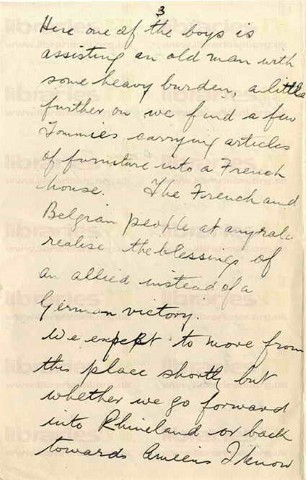 3
Here one of the boys is
assisting an old man with
some heavy burden, a little
further on we find a few
Tommies carrying articles
of furniture into a French
house. The French and
Belgian people at anyrate
realise the blessings of
an allied instead of a
German victory.
We expect to move from
this place shortly but
whether we go forward
into Rhineland or back
towards Amiens I know